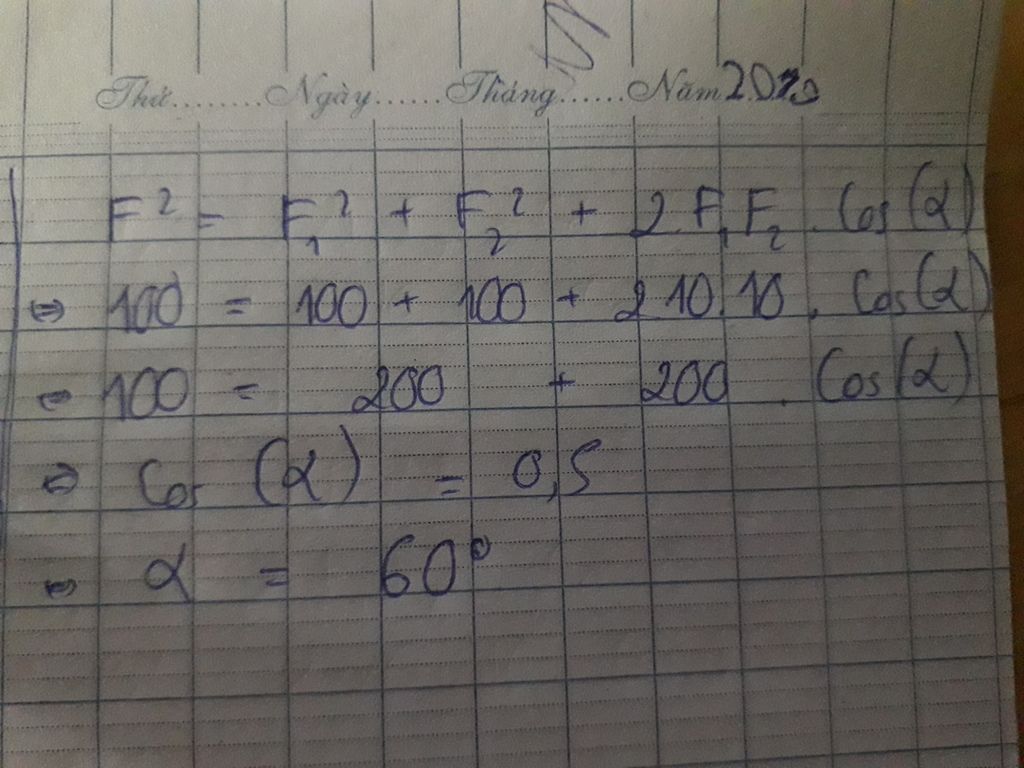 Thứ........Ngày......Tháng......Năm 2020
F² = F₁² + F₂² + 2.F₁.F₂.Cos(α)
⇔ 100 = 100 + 100 + 2.10.10.Cos(α)
⇔ 100 = 200 + 200.Cos(α)
⇔ Cos(α) = 0,5
⇔ α = 60°